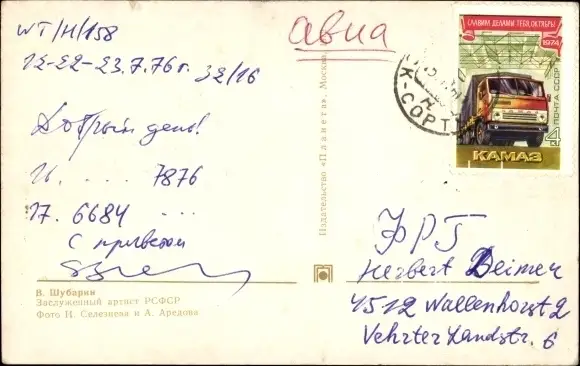 WT/H/158
12-22-23.7.76г. 32/16
Добрый день!
16. .... 7876
17. 6684 ...
С приветом
В. Шубарин
Заслуженный артист РСФСР
Фото Н. Селезнева и А. Аредова
Издательство «Планета». Москва
авиа
К-СОРТ
СЛАВИМ ДЕЛАМИ ТЕБЯ, ОКТЯБРЬ!
1974
ПОЧТА СССР
4К
КАМАЗ
ФРГ
Herbert Deimer
4512 Wallenhorst 2
Vehrter Landstr. 6